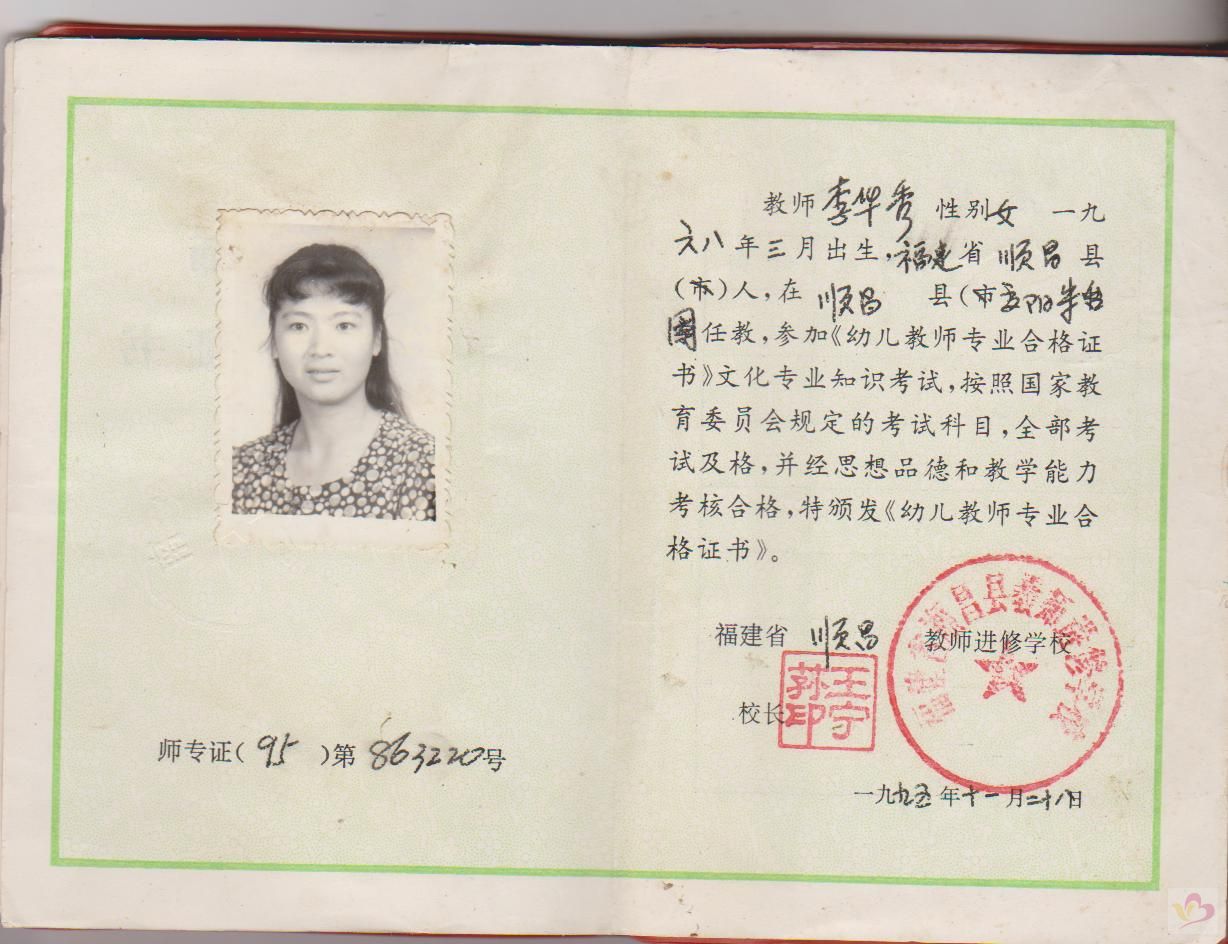 教师李华秀 性别女 一九
六八年三月出生,福建省 顺昌县
(市)人,在 顺昌 县(市
任教,参加《幼儿教师专业合格证
书》文化专业知识考试,按照国家教
育委员会规定的考试科目,全部考
试及格,并经思想品德和教学能力
考核合格,特颁发《幼儿教师专业合
格证书》。
福建省 顺昌 教师进修学校
福建省顺昌县教师进修学校
校长
王宁荪印
师专证(95)第863220号
一九九五年十一月二十八日